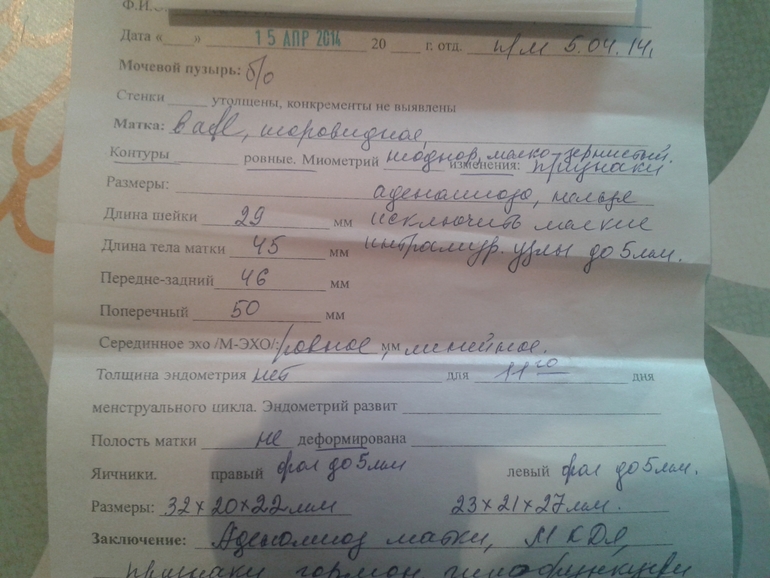 Ф.И.
Дата «____» 15 АПР 2014 20 ____ г. отд. п/м 5.04.14г
Мочевой пузырь: б/о
Стенки ______ утолщены, конкременты не выявлены
Матка: в afl, шаровидное,
Контуры ________ ровные. Миометрий неоднор, мелко-зернистый. изменения: признаки
Размеры: аденомиоза, нельзя
Длина шейки 29 мм исключить мелкие
Длина тела матки 45 мм интрамур. узлы до 5 мм.
Передне-задний 46 мм
Поперечный 50 мм
Серединное эхо /М-ЭХО/: ровное мм, линейное.
Толщина эндометрия нет для 11го дня
менструального цикла. Эндометрий развит
Полость матки не деформирована
Яичники. правый фол до 5 мм левый фол до 5 мм.
Размеры: 32 х 20 х 22 мм 23 х 21 х 27 мм.
Заключение: Аденомиоз матки, М КДЯ,
признаки гормон гипофункции